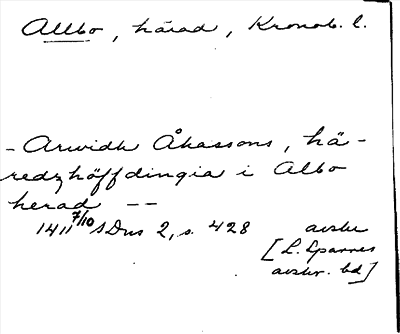 Allbo, härad, Kronob. l.
- Arwidh Åkassons, hä-
redzhöffdingia i Albo
herad --
1411 7/10 SDns 2, s. 428 avskr
[L. Sparres
avskr. bd]